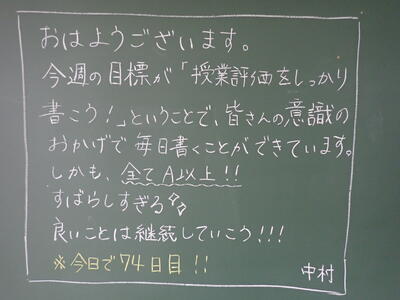 おはようございます。
今週の目標が「授業評価をしっかり
書こう！」ということで、皆さんの意識の
おかげで毎日書くことができています。
しかも、全てA以上!!
すばらしすぎる
良いことは継続していこう!!!
※今日で74日目!!
中村